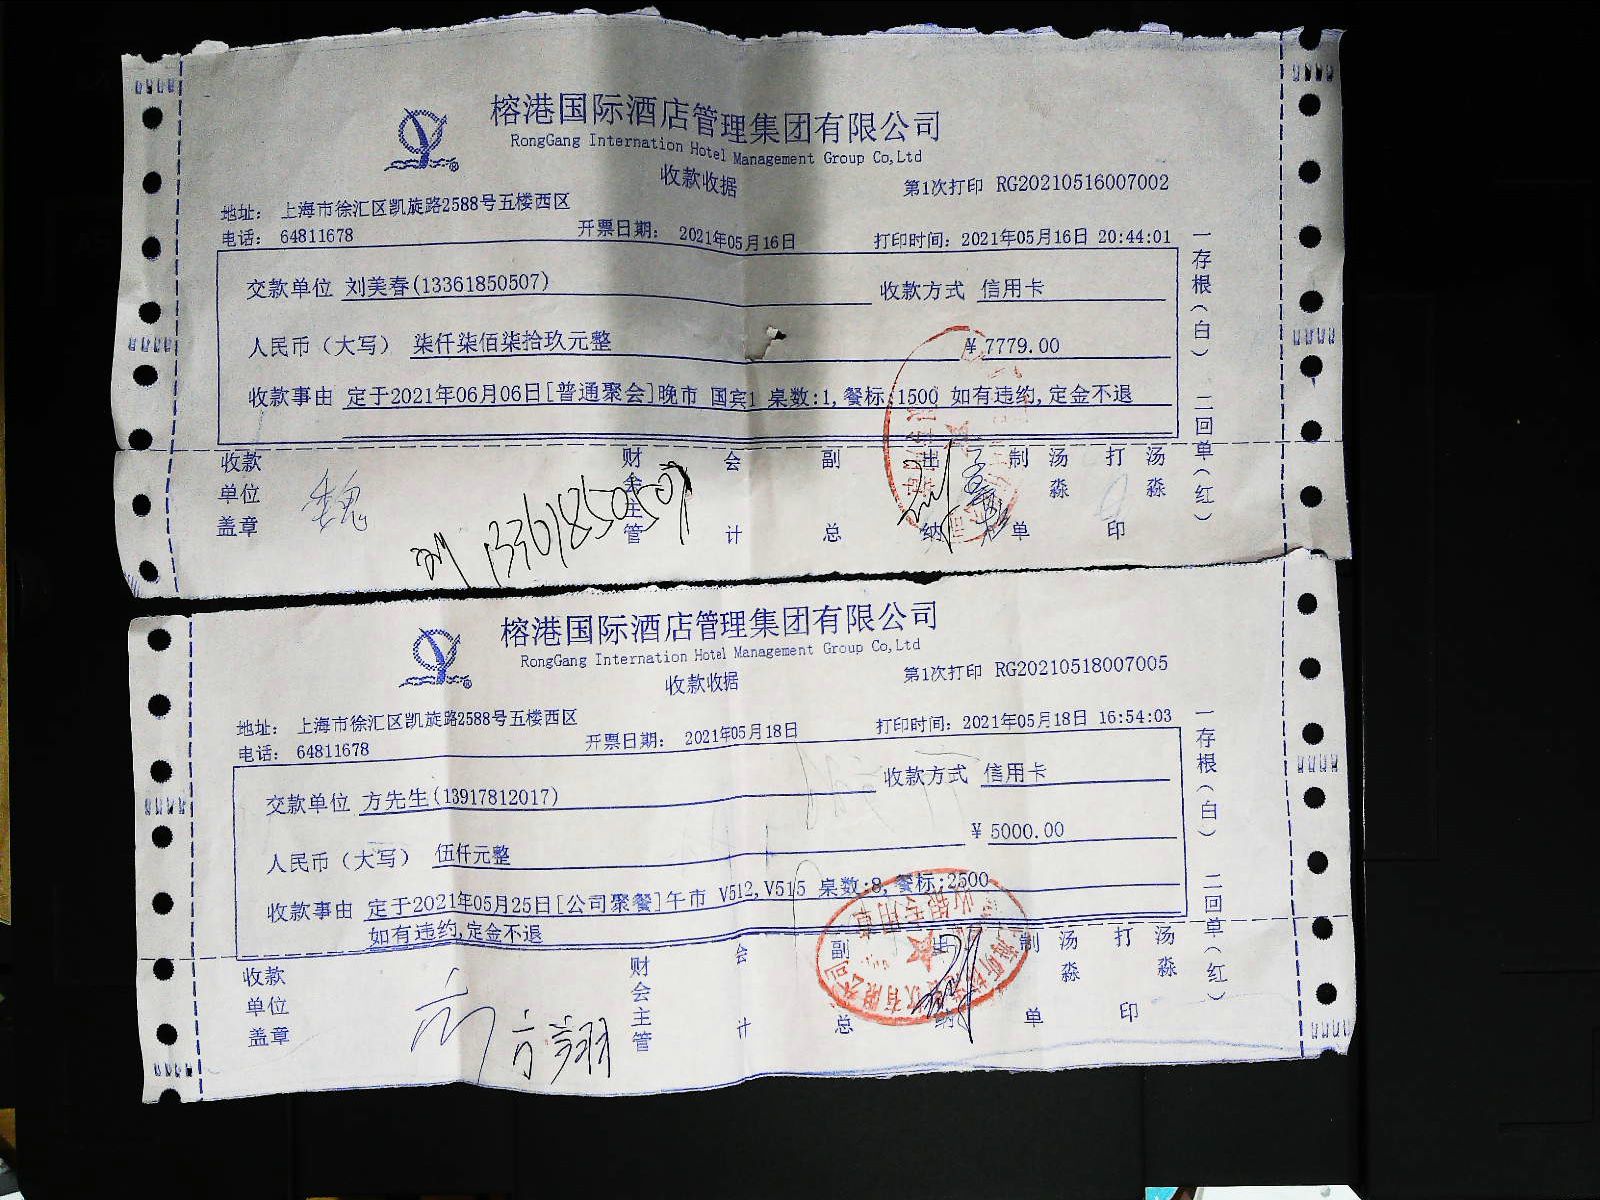 榕港国际酒店管理集团有限公司
RongGang Internation Hotel Management Group Co,Ltd
收款收据
第1次打印 RG20210516007002
地址： 上海市徐汇区凯旋路2588号五楼西区
电话： 64811678
开票日期： 2021年05月16日
打印时间：2021年05月16日 20:44:01
交款单位 刘美春(13361850507)
收款方式 信用卡
人民币（大写） 柒仟柒佰柒拾玖元整
¥ 7779.00
收款事由 定于2021年06月06日[普通聚会]晚市 国宾1 桌数:1,餐标:1500 如有违约,定金不退
一存根（白） 二回单（红）
收款单位盖章
魏
财会主管
会计
副总
出纳
制单
汤淼
打印
汤淼
刘 13361850507
榕港国际酒店管理集团有限公司
RongGang Internation Hotel Management Group Co,Ltd
收款收据
第1次打印 RG20210518007005
地址： 上海市徐汇区凯旋路2588号五楼西区
电话： 64811678
开票日期： 2021年05月18日
打印时间：2021年05月18日 16:54:03
交款单位 方先生(13917812017)
收款方式 信用卡
人民币（大写） 伍仟元整
¥ 5000.00
收款事由 定于2021年05月25日[公司聚餐]午市 V512,V515 桌数:8,餐标:2500
如有违约,定金不退
一存根（白） 二回单（红）
收款单位盖章
方翔
财会主管
会计
副总
出纳
制单
汤淼
打印
汤淼